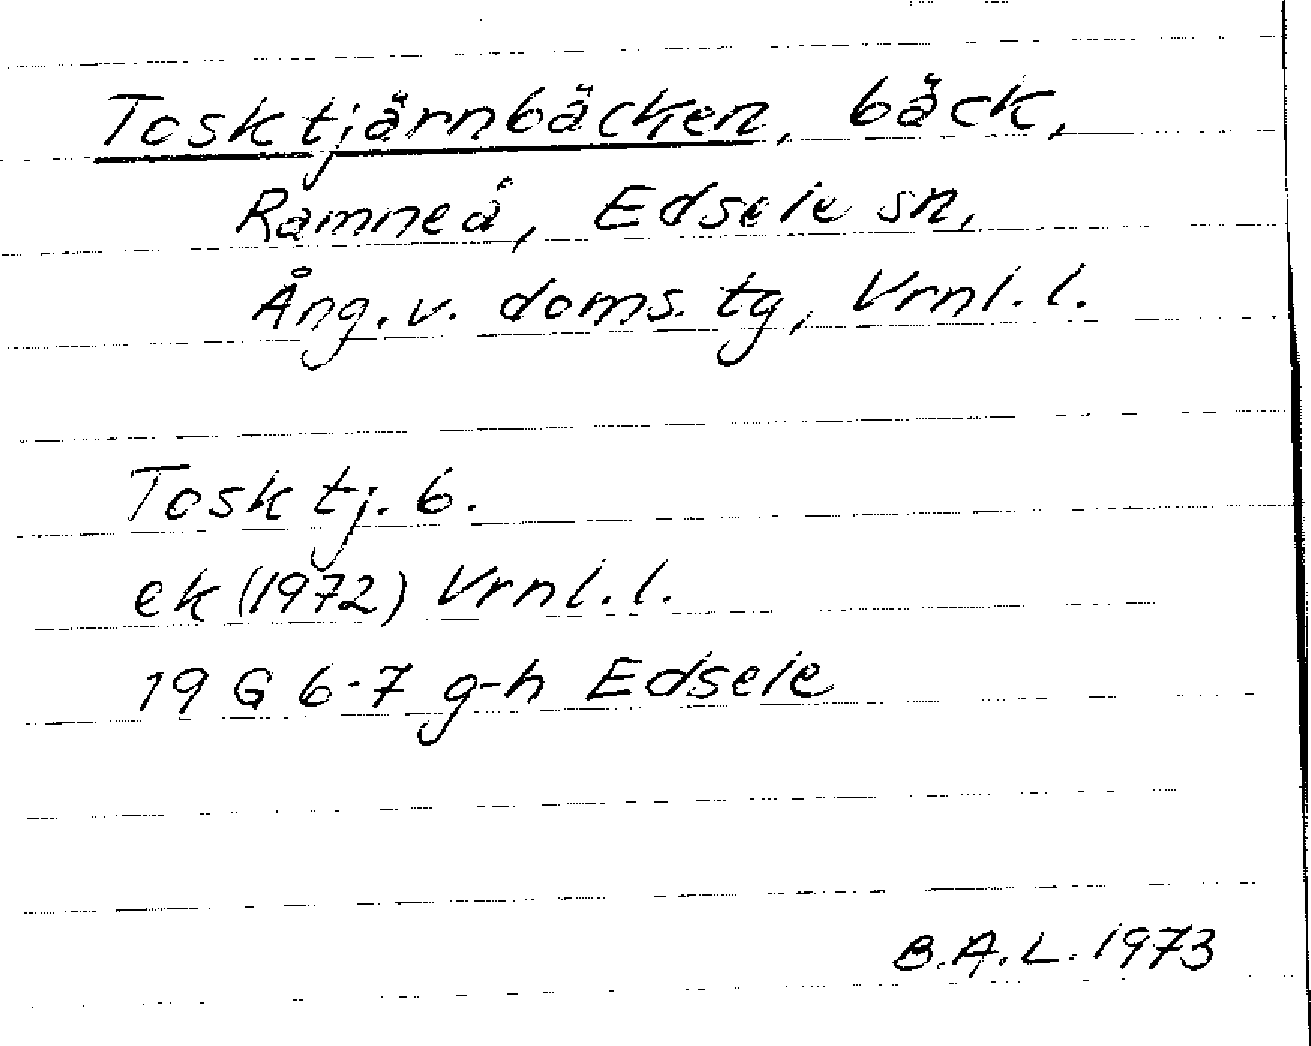 Tosktjärnbäcken, bäck,
Ramneå, Edsele sn,
Ång. v. doms. tg, Vrnl. l.
Tosktj. b.
ek (1972) Vrnl. l.
19 G 6-7 g-h Edsele
B.A.L. 1973